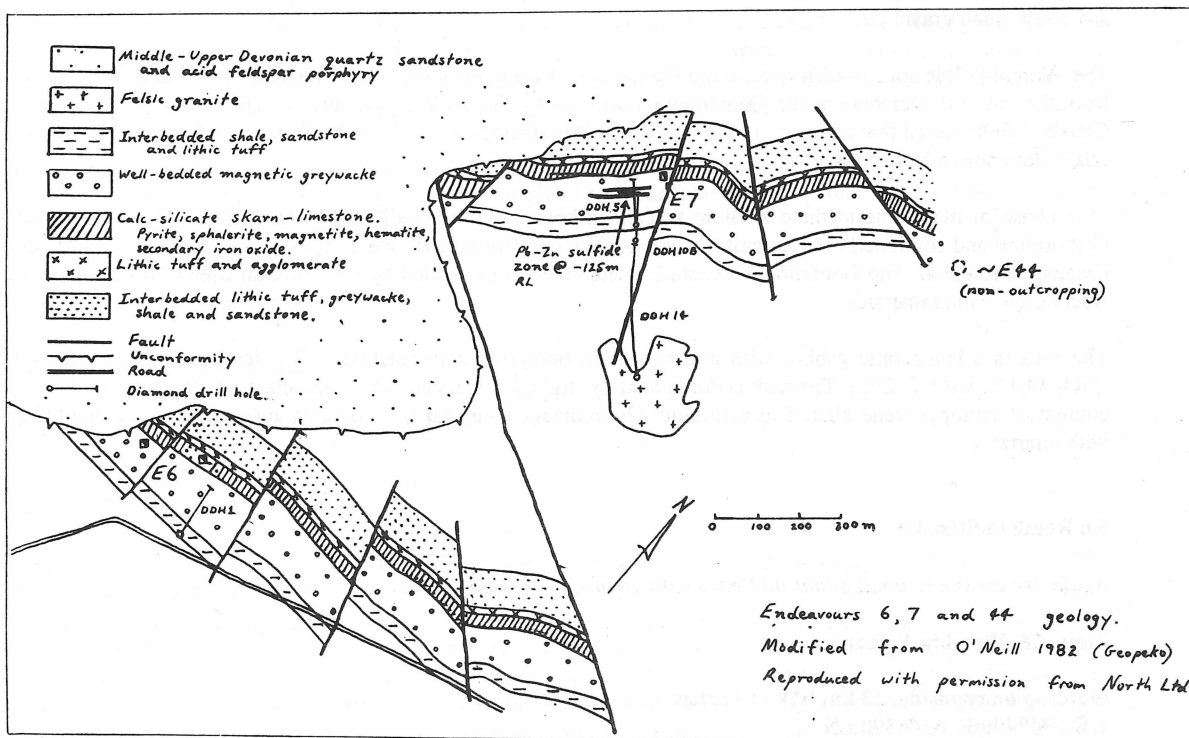 Middle-Upper Devonian quartz sandstone
and acid feldspar porphyry
Felsic granite
Interbedded shale, sandstone
and lithic tuff
Well-bedded magnetic greywacke
Calc-silicate skarn-limestone.
Pyrite, sphalerite, magnetite, hematite,
secondary iron oxide.
Lithic tuff and agglomerate
Interbedded lithic tuff, greywacke,
shale and sandstone.
Fault
Unconformity
Road
Diamond drill hole.
E7
DDH 54
Pb-Zn sulfide
zone @ -125m
RL
DDH 108
DDH 14
~E44
(non-outcropping)
E6
DDH 1
N
0 100 200 300 m
Endeavours 6, 7 and 44 geology.
Modified from O'Neill 1982 (Geopeko)
Reproduced with permission from North Ltd